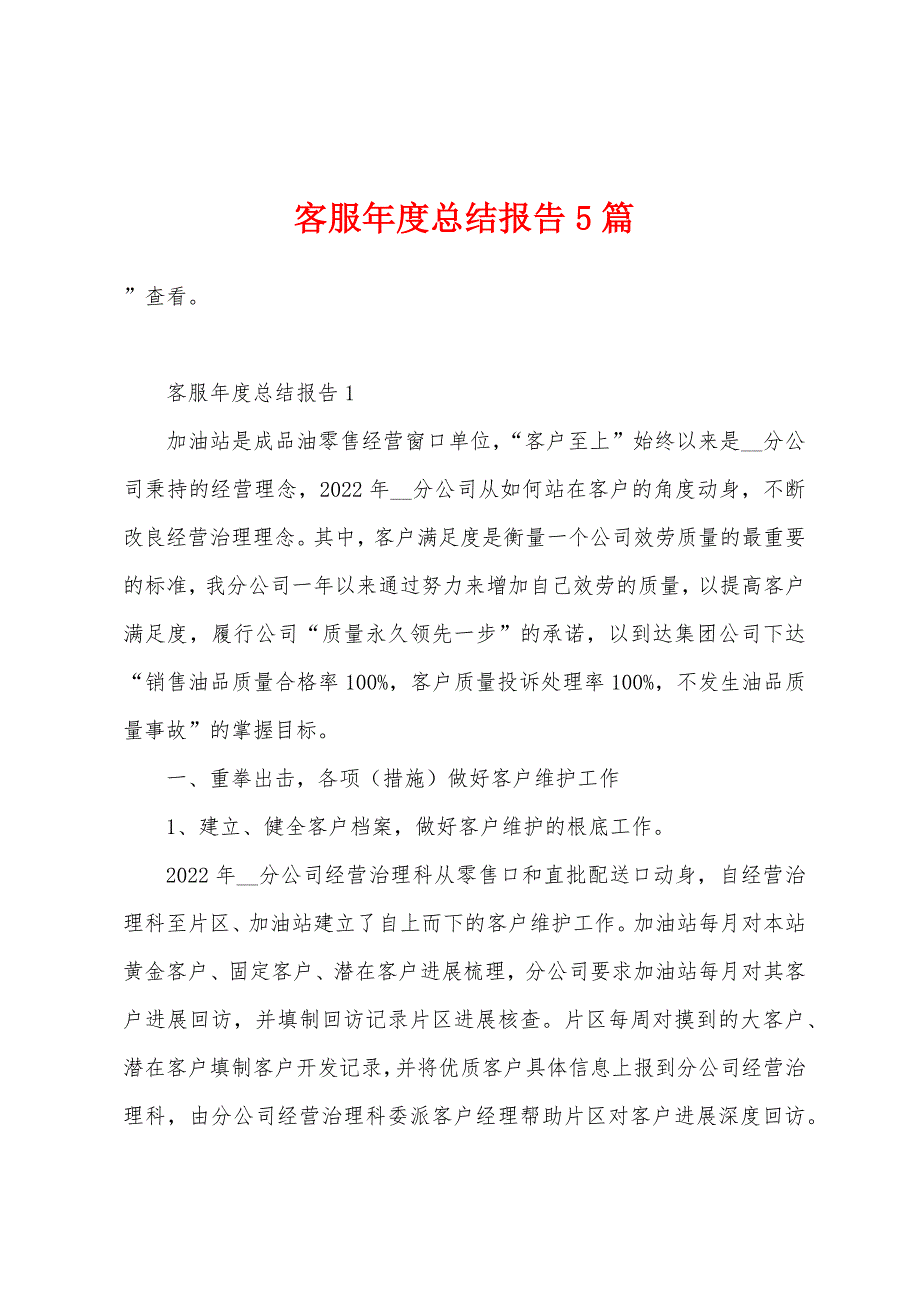 客服年度总结报告 5 篇
”查看。
客服年度总结报告 1
加油站是成品油零售经营窗口单位，“客户至上”始终以来是__分公
司秉持的经营理念，2022 年__分公司从如何站在客户的角度动身，不断
改良经营治理理念。其中，客户满足度是衡量一个公司效劳质量的最重要
的标准，我分公司一年以来通过努力来增加自己效劳的质量，以提高客户
满足度，履行公司“质量永久领先一步”的承诺，以到达集团公司下达
“销售油品质量合格率 100%，客户质量投诉处理率 100%，不发生油品质
量事故”的掌握目标。
一、重拳出击，各项（措施）做好客户维护工作
1、建立、健全客户档案，做好客户维护的根底工作。
2022 年__分公司经营治理科从零售口和直批配送口动身，自经营治
理科至片区、加油站建立了自上而下的客户维护工作。加油站每月对本站
黄金客户、固定客户、潜在客户进展梳理，分公司要求加油站每月对其客
户进展回访，并填制回访记录片区进展核查。片区每周对摸到的大客户、
潜在客户填制客户开发记录，并将优质客户具体信息上报到分公司经营治
理科，由分公司经营治理科委派客户经理帮助片区对客户进展深度回访。